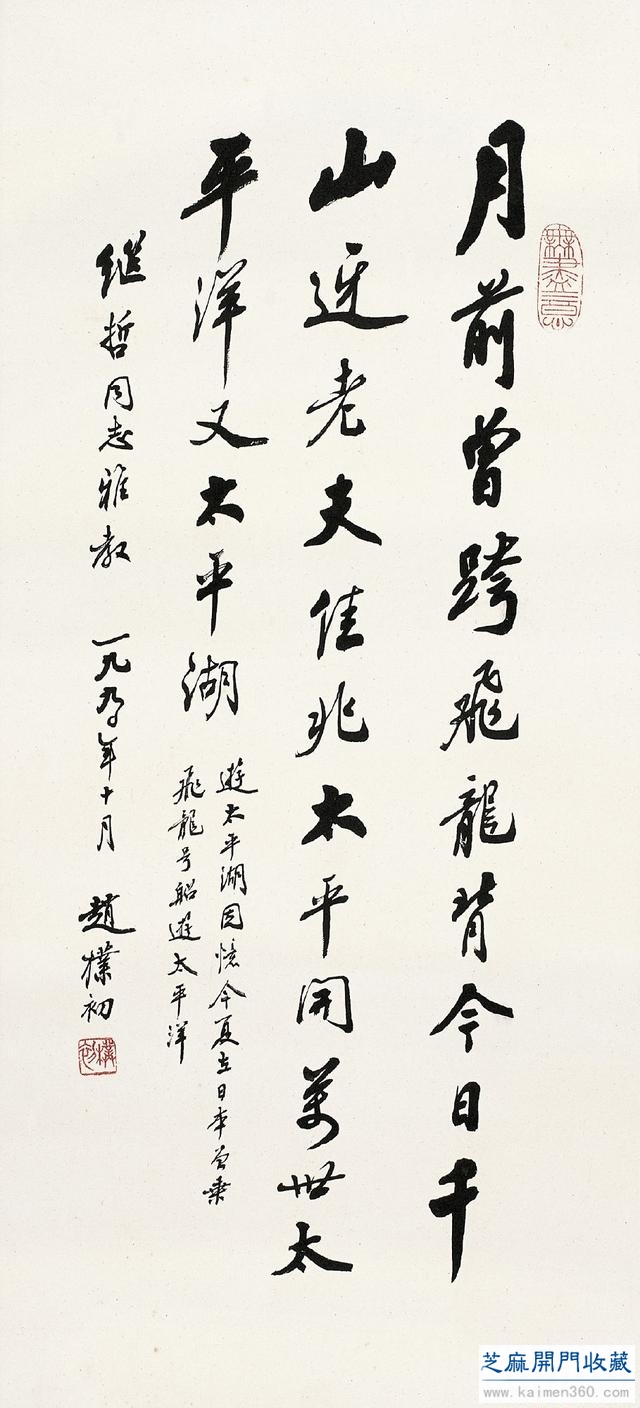 月前曾跨飛龍背今日千
山迓老夫佳兆太平開萬世太
平洋又太平湖
遊太平湖因憶今夏在日本曾乘
飛龍号船遊太平洋
继哲同志雅教 一九九〇年十月 趙樸初
無盡意
樸初
芝麻開門收藏
www.kaimen360.com